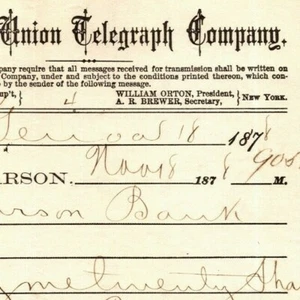 Union Telegraph Company.
pany require that all messages received for transmission shall be written on
Company, under and subject to the conditions printed thereon, which con-
by the sender of the following message.
p't, WILLIAM ORTON, President,
A. R. BREWER, Secretary, NEW YORK.
18 1878
ARSON. Nov 18 1878 M.
arson Bank
me twenty Sha